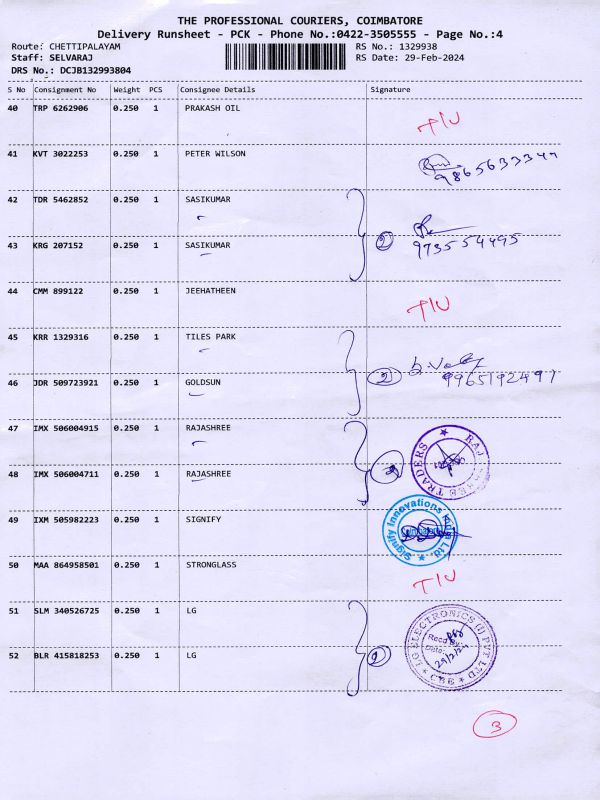 THE PROFESSIONAL COURIERS, COIMBATORE
Delivery Runsheet - PCK - Phone No.:0422-3505555 - Page No.:4
Route: CHETTIPALAYAM RS No.: 1329938
Staff: SELVARAJ RS Date: 29-Feb-2024
DRS No.: DCJB132993804
S No Consignment No Weight PCS Consignee Details Signature
40 TRP 6262906 0.250 1 PRAKASH OIL T/U
41 KVT 3022253 0.250 1 PETER WILSON
42 TDR 5462852 0.250 1 SASIKUMAR
43 KRG 207152 0.250 1 SASIKUMAR 2 9735554495
44 CMM 899122 0.250 1 JEEHATHEEN T/U
45 KRR 1329316 0.250 1 TILES PARK
46 JDR 509723921 0.250 1 GOLDSUN 2 9965192491
47 IMX 506004915 0.250 1 RAJASHREE
48 IMX 506004711 0.250 1 RAJASHREE TRADERS
49 IXM 505982223 0.250 1 SIGNIFY Signify Innovations India Ltd.
50 MAA 864958501 0.250 1 STRONGLASS T/U
51 SLM 340526725 0.250 1 LG LG ELECTRONICS (I) PVT LTD
Recd By:
Date: 29/2/24
52 BLR 415818253 0.250 1 LG 2 CBE
3